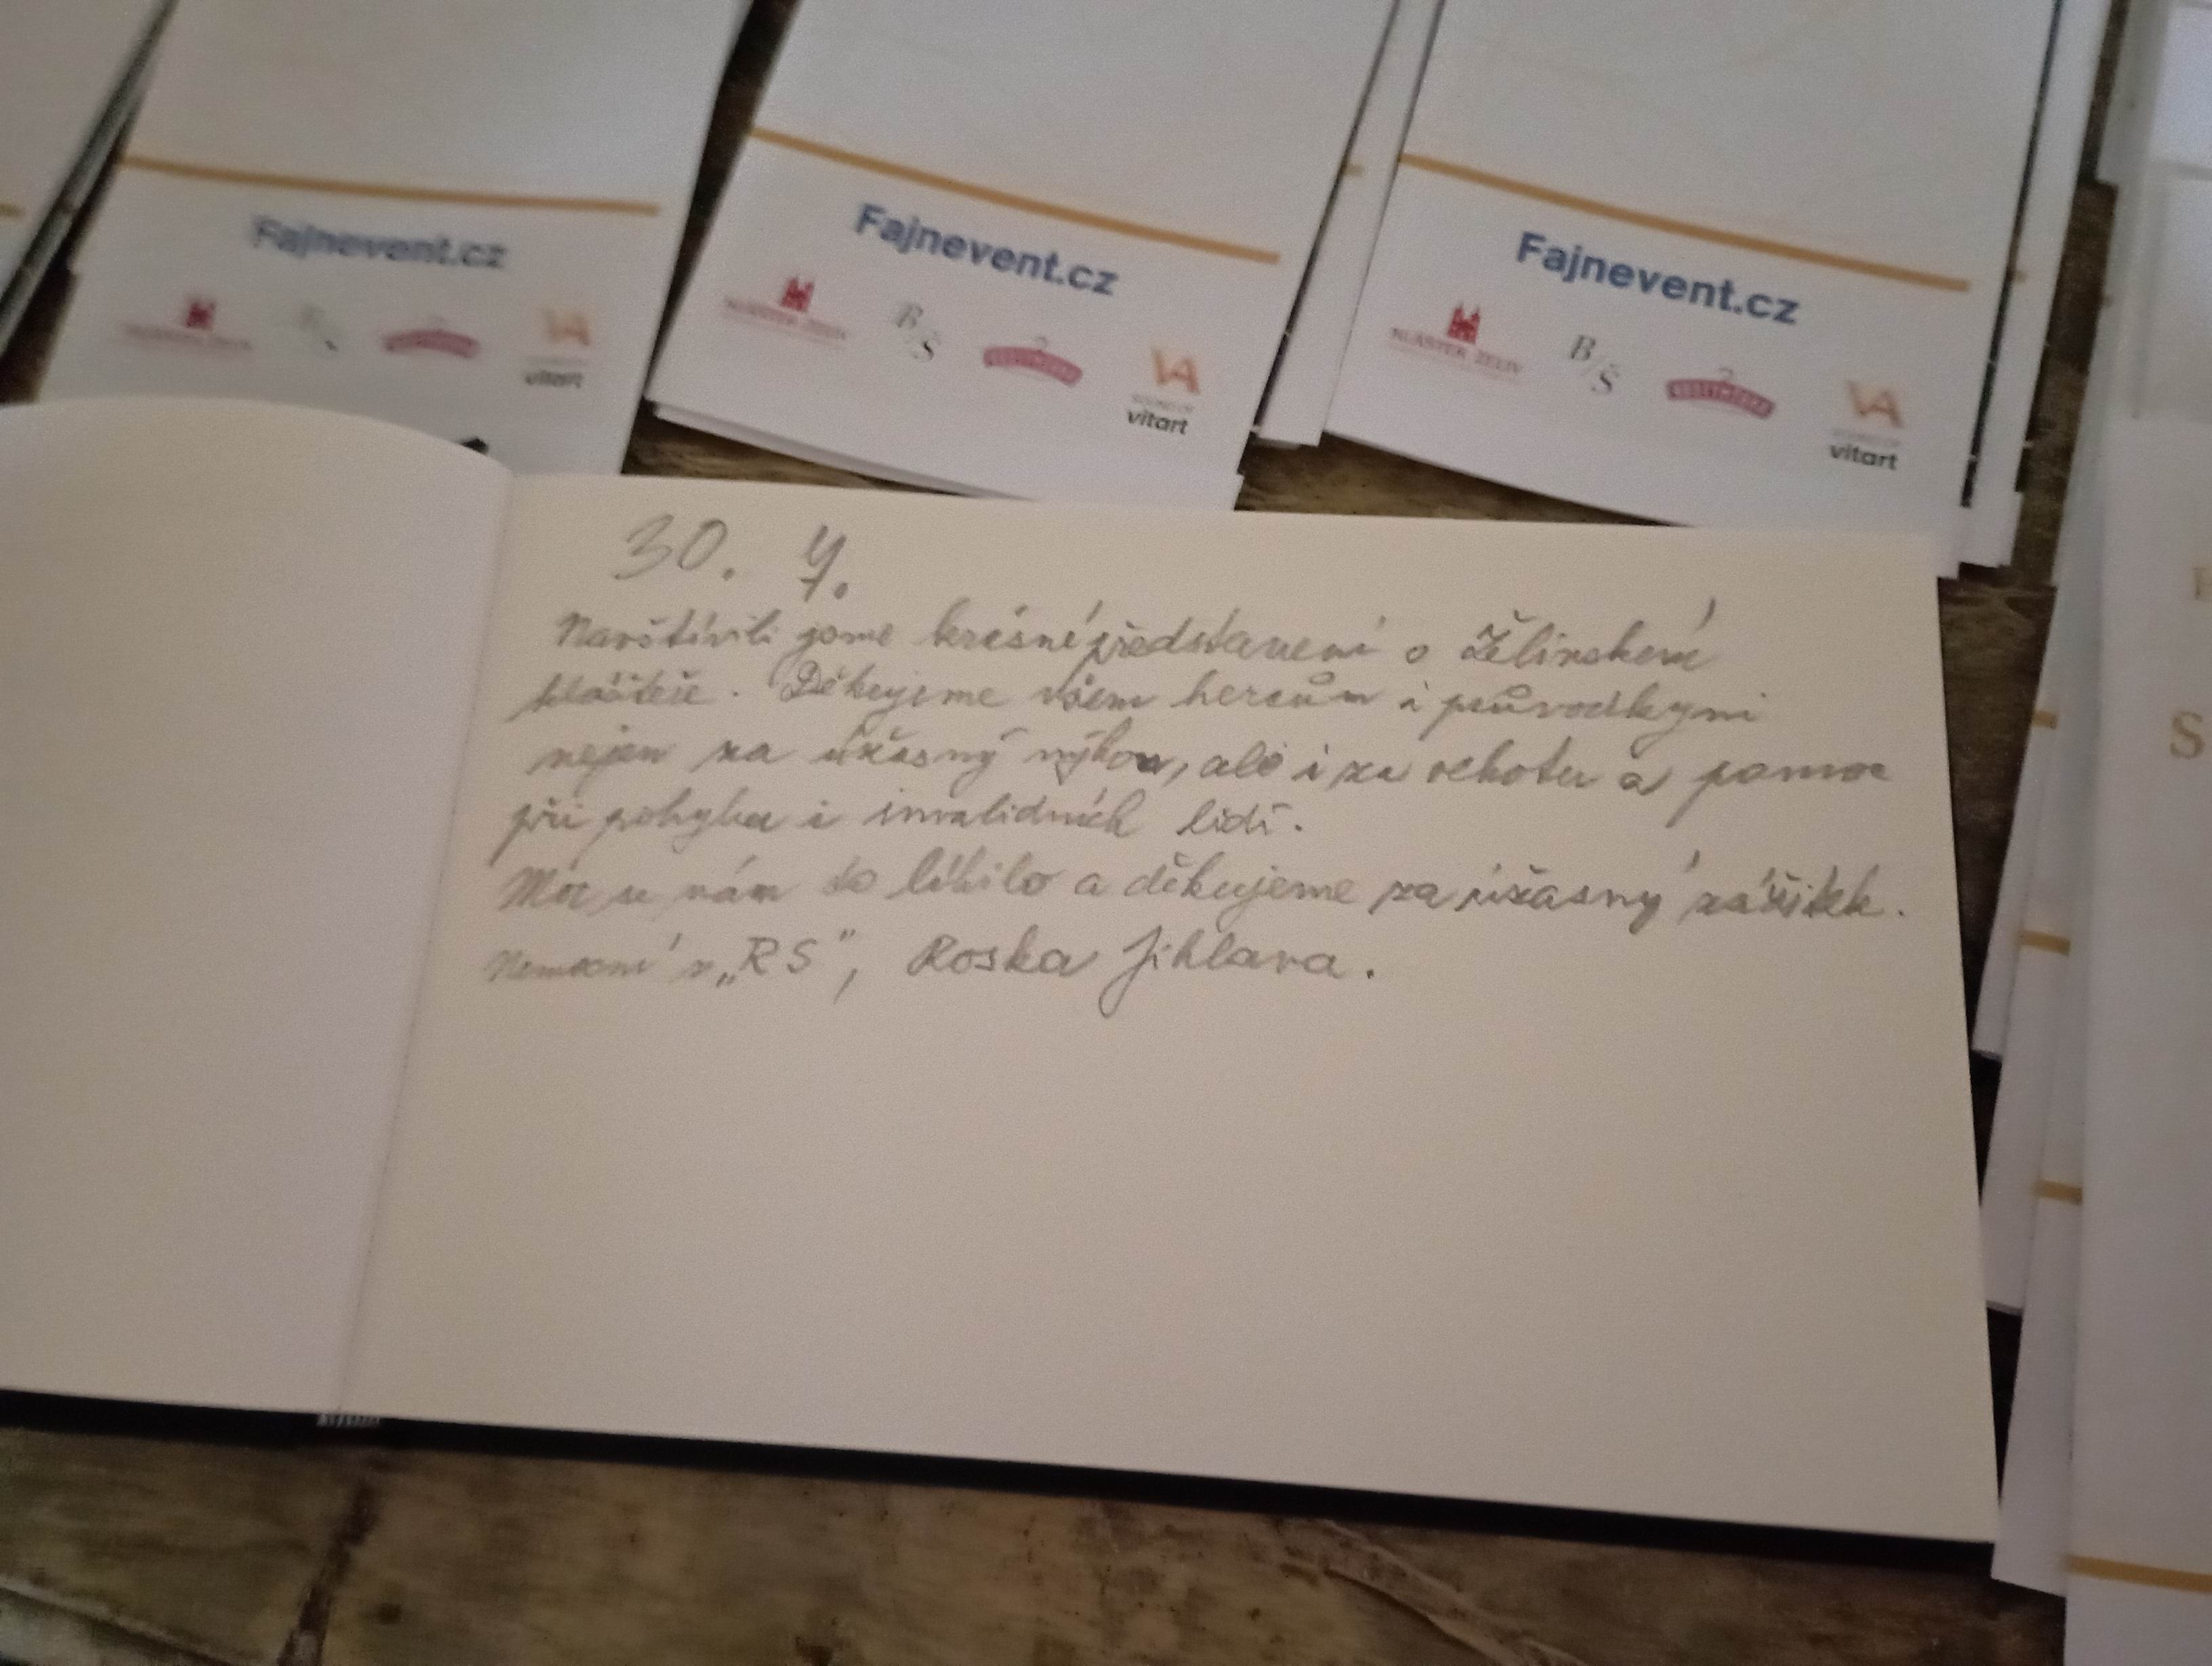 Fajnevent.cz
vitart
Fajnevent.cz
KLÁŠTER ŽELIV
B/Š
vitart
Fajnevent.cz
KLÁŠTER ŽELIV
B/Š
vitart
S
30. 7.
Navštívili jsme krásné představení o Želivském
klášteře. Děkujeme všem hercům i průvodkyni
nejen za úžasný výkon, ale i za ochotu a pomoc
při pohybu i invalidních lidí.
Moc se nám to líbilo a děkujeme za úžasný zážitek.
Nemocní s „RS", Roska Jihlava.